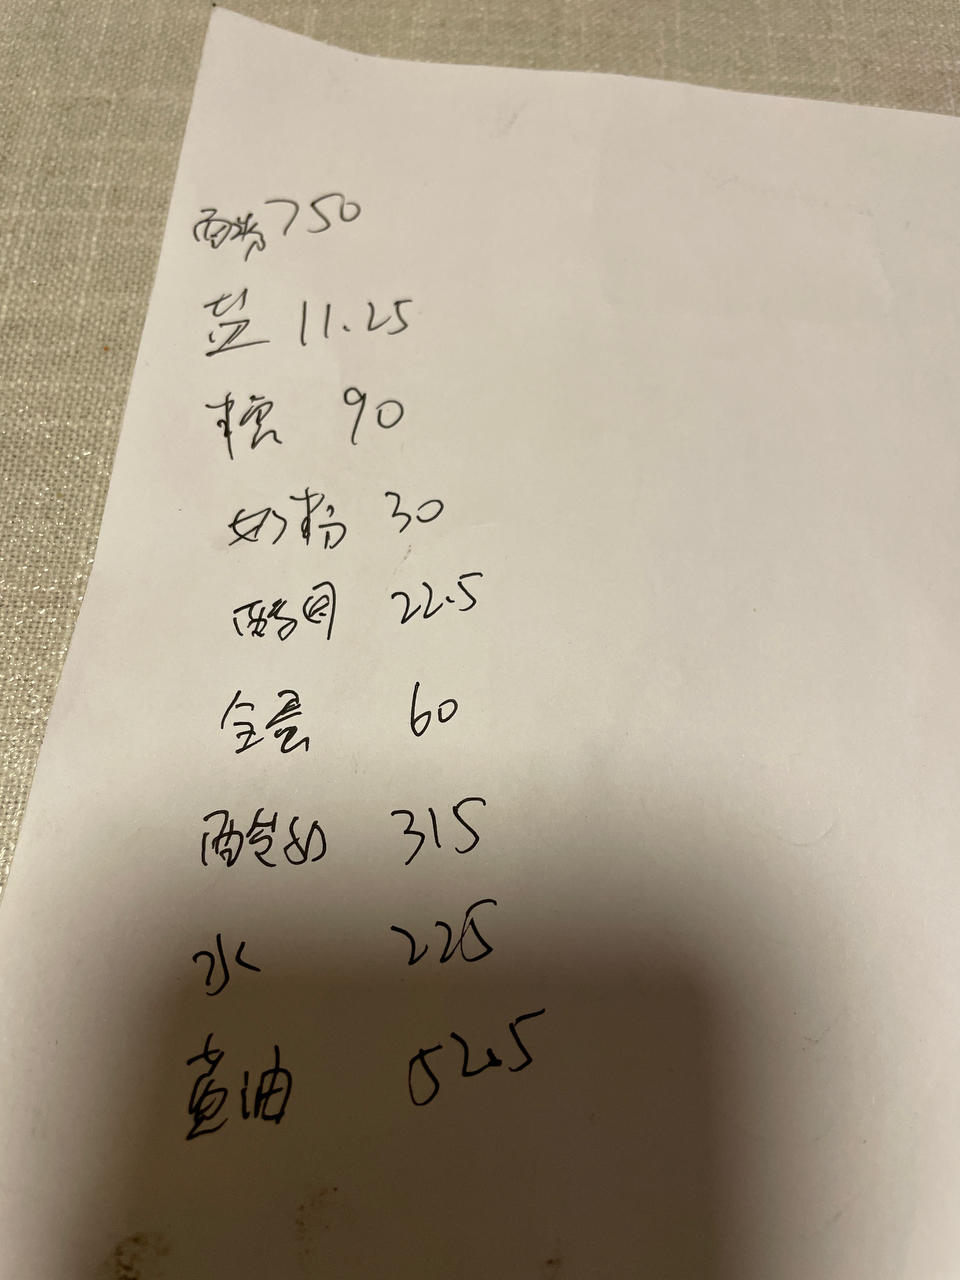 酵种750
盐 11.25
糖 90
奶粉 30
酵母 22.5
全蛋 60
酸奶 315
水 225
黄油 52.5